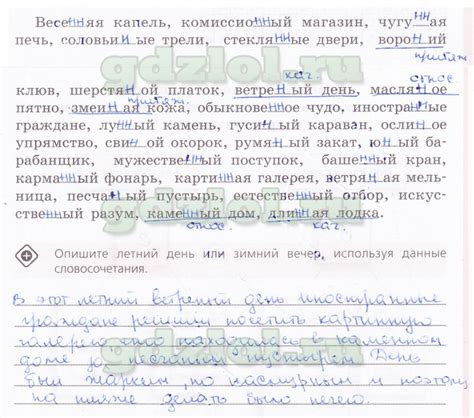 Весенняя капель, комиссионный магазин, чугунная
печь, соловьиные трели, стеклянные двери, вороний
притяж.
клюв, шерстяной платок, ветреный день, масляное
кач.
относ.
пятно, змеиная кожа, обыкновенное чудо, иностранные
притяж.
граждане, лунный камень, гусиный караван, ослиное
упрямство, свиной окорок, румяный закат, юный ба-
рабанщик, мужественный поступок, башенный кран,
карманный фонарь, картинная галерея, ветряная мель-
ница, песчаный пустырь, естественный отбор, искус-
ственный разум, каменный дом, длинная лодка.
относ.
кач.
Опишите летний день или зимний вечер, используя данные
словосочетания.
В этот летний ветреный день иностранные
граждане решили посетить картинную
галерею. Она находилась в каменном
доме за песчаным пустырем. День
был жарким, но пасмурным и поэтому
на пляже делать было нечего.
gdzlol.ru
gdzlol.ru
gdzlol.ru
gdzlol.ru